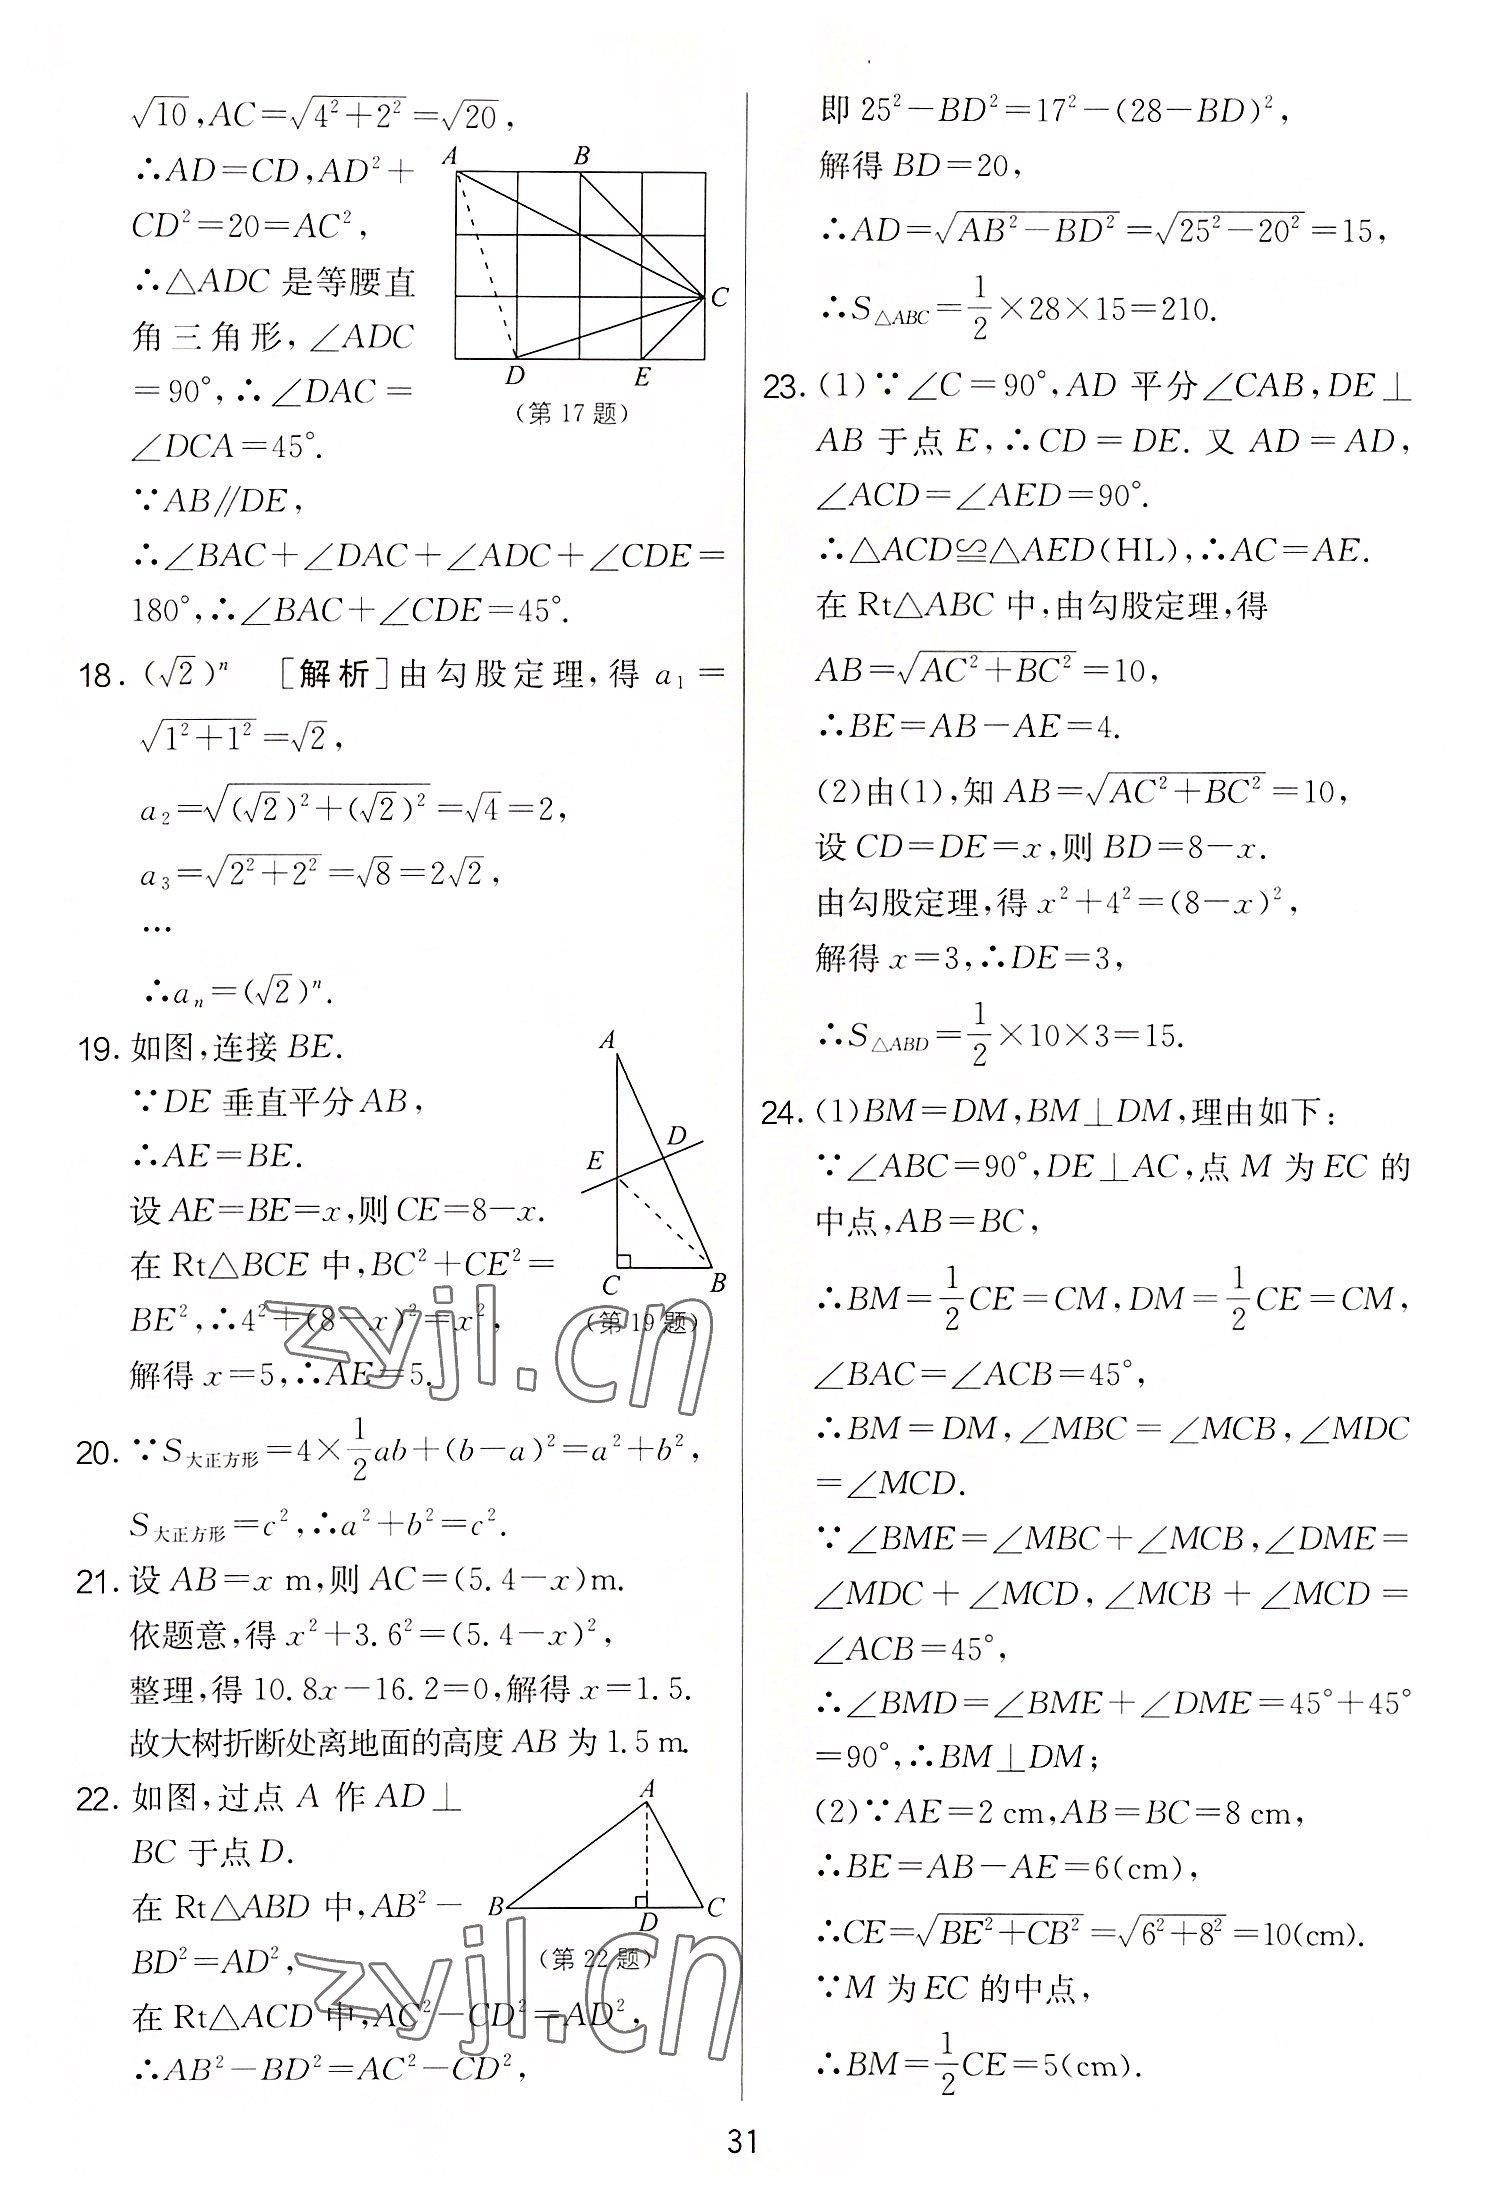 √10,AC=√(4²+2²)=√20,
∴AD=CD,AD²+
CD²=20=AC²,
∴△ADC 是等腰直
角三角形,∠ADC
=90°,∴∠DAC=
∠DCA=45°.
∵AB∥DE,
A B
C
D E
(第 17 题)
∴∠BAC+∠DAC+∠ADC+∠CDE=
180°,∴∠BAC+∠CDE=45°.
18. (√2)ⁿ [解析]由勾股定理,得 a₁=
√(1²+1²)=√2,
a₂=√((√2)²+(√2)²)=√4=2,
a₃=√(2²+2²)=√8=2√2,
…
∴aₙ=(√2)ⁿ.
19. 如图,连接 BE.
∵DE 垂直平分 AB,
∴AE=BE.
设 AE=BE=x,则 CE=8-x.
在 Rt△BCE 中,BC²+CE²=
BE²,∴4²+(8-x)²=x²,
解得 x=5,∴AE=5.
A
D
E
C B
(第 19 题)
20. ∵S大正方形=4×1/2ab+(b-a)²=a²+b²,
S大正方形=c²,∴a²+b²=c².
21. 设 AB=x m,则 AC=(5.4-x)m.
依题意,得 x²+3.6²=(5.4-x)²,
整理,得 10.8x-16.2=0,解得 x=1.5.
故大树折断处离地面的高度 AB 为 1.5 m.
22. 如图,过点 A 作 AD⊥
BC 于点 D.
在 Rt△ABD 中,AB²-
BD²=AD²,
A
B D C
(第 22 题)
在 Rt△ACD 中,AC²-CD²=AD²,
∴AB²-BD²=AC²-CD²,
即 25²-BD²=17²-(28-BD)²,
解得 BD=20,
∴AD=√(AB²-BD²)=√(25²-20²)=15,
∴S△ABC=1/2×28×15=210.
23. (1)∵∠C=90°,AD 平分∠CAB,DE⊥
AB 于点 E,∴CD=DE. 又 AD=AD,
∠ACD=∠AED=90°.
∴△ACD≌△AED(HL),∴AC=AE.
在 Rt△ABC 中,由勾股定理,得
AB=√(AC²+BC²)=10,
∴BE=AB-AE=4.
(2)由(1),知 AB=√(AC²+BC²)=10,
设 CD=DE=x,则 BD=8-x.
由勾股定理,得 x²+4²=(8-x)²,
解得 x=3,∴DE=3,
∴S△ABD=1/2×10×3=15.
24. (1)BM=DM,BM⊥DM,理由如下:
∵∠ABC=90°,DE⊥AC,点 M 为 EC 的
中点,AB=BC,
∴BM=1/2CE=CM,DM=1/2CE=CM,
∠BAC=∠ACB=45°,
∴BM=DM,∠MBC=∠MCB,∠MDC
=∠MCD.
∵∠BME=∠MBC+∠MCB,∠DME=
∠MDC+∠MCD,∠MCB+∠MCD=
∠ACB=45°,
∴∠BMD=∠BME+∠DME=45°+45°
=90°,∴BM⊥DM;
(2)∵AE=2 cm,AB=BC=8 cm,
∴BE=AB-AE=6(cm),
∴CE=√(BE²+CB²)=√(6²+8²)=10(cm).
∵M 为 EC 的中点,
∴BM=1/2CE=5(cm).
zyjl.cn
zyjl.cn
31